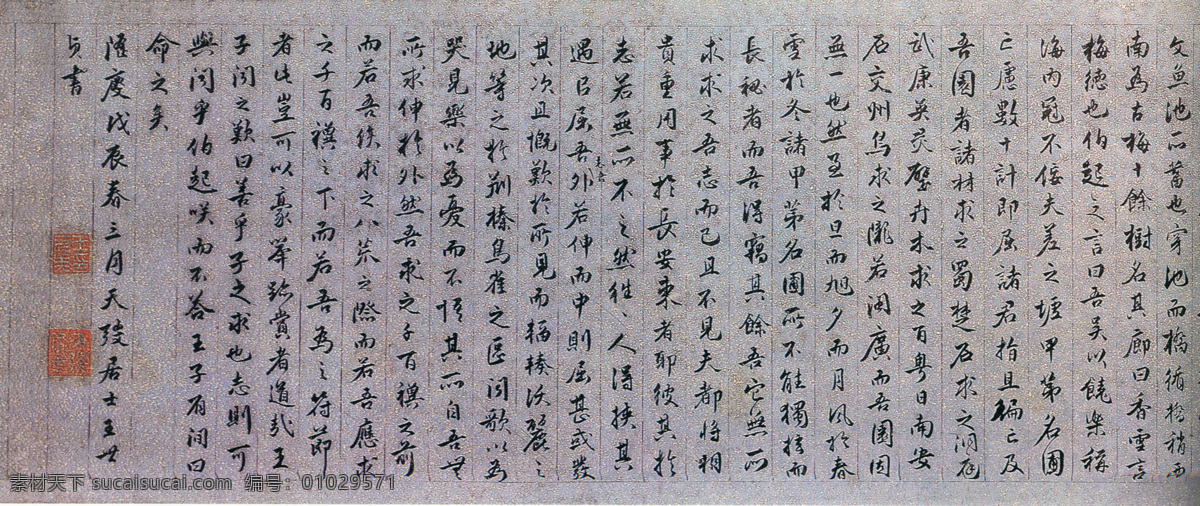 文魚池所蓄也穿池而橋循橋稍西
南為古梅十餘樹名其廊曰香雪言
梅德也伯起之言曰吾吳以饒樂稱
海內冠不佞夫差之墟甲第名園
亡慮數十計即屈諸君指且徧亡及
吾園者諸材求之蜀楚石求之洞庭
武康英灵壁卉木求之百粵日南安
石交州鳥求之隴若閩廣而吾園固
無一也然至於旦而旭夕而月風於春
雪於冬諸甲第名園所不能獨擅而
長秘者而吾得竊其餘吾它無所
求求之吾志而已且不見夫都將相
貴重用事於長安東者耶彼其於
志若無所不之然往〻人得挾其
遇以屈吾志於外若伸而中則屈甚或發
其次且慨歎於所見而輻輳沃麗之
地等之於荊榛鳥雀之區聞歌以為
哭見樂以為憂而不悟其所自吾無
所求伸於外然吾求之千百禩之前
而若吾俟求之八荒之際而若吾應求
之千百禩之下而若吾為之符節
者此豈可以豪舉跡賞者道哉王
子聞之歎曰善乎子之求也志則可
與聞乎伯起咲而不答王子有間曰
命之矣
隆慶戊辰春三月天弢居士王世
貞書
素材天下 sucaisucai.com 编号：01029571